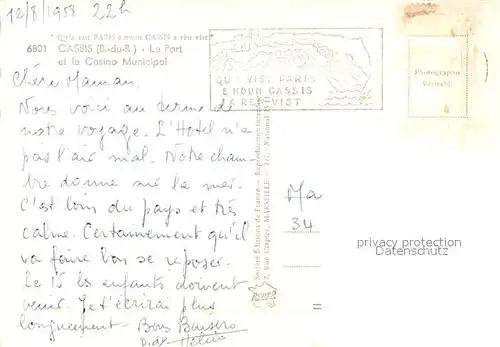 12/8/1958 22h
" Qu'a vist PARIS e noun CASSIS a rèn vist "
6801 CASSIS (B.-du-R.) - Le Port
et le Casino Municipal
QU'A VIST PARIS
E NOUN CASSIS
A REN VIST
Photographie
Véritable
Chère Maman,
Nous voici au terme de
notre voyage. L'Hotel n'a
pas l'air mal. Notre cham-
bre donne sur la mer.
C'est loin du pays et très
calme. Certainement qu'il
va faire bon se reposer.
Le 15 les enfants doivent
venir. Je t'écrirai plus
longuement - Bons Baisers
Société Éditions de France - Reproduction interdite
2, Rue Crépet, MARSEILLE
Ma
34
privacy protection
Datenschutz